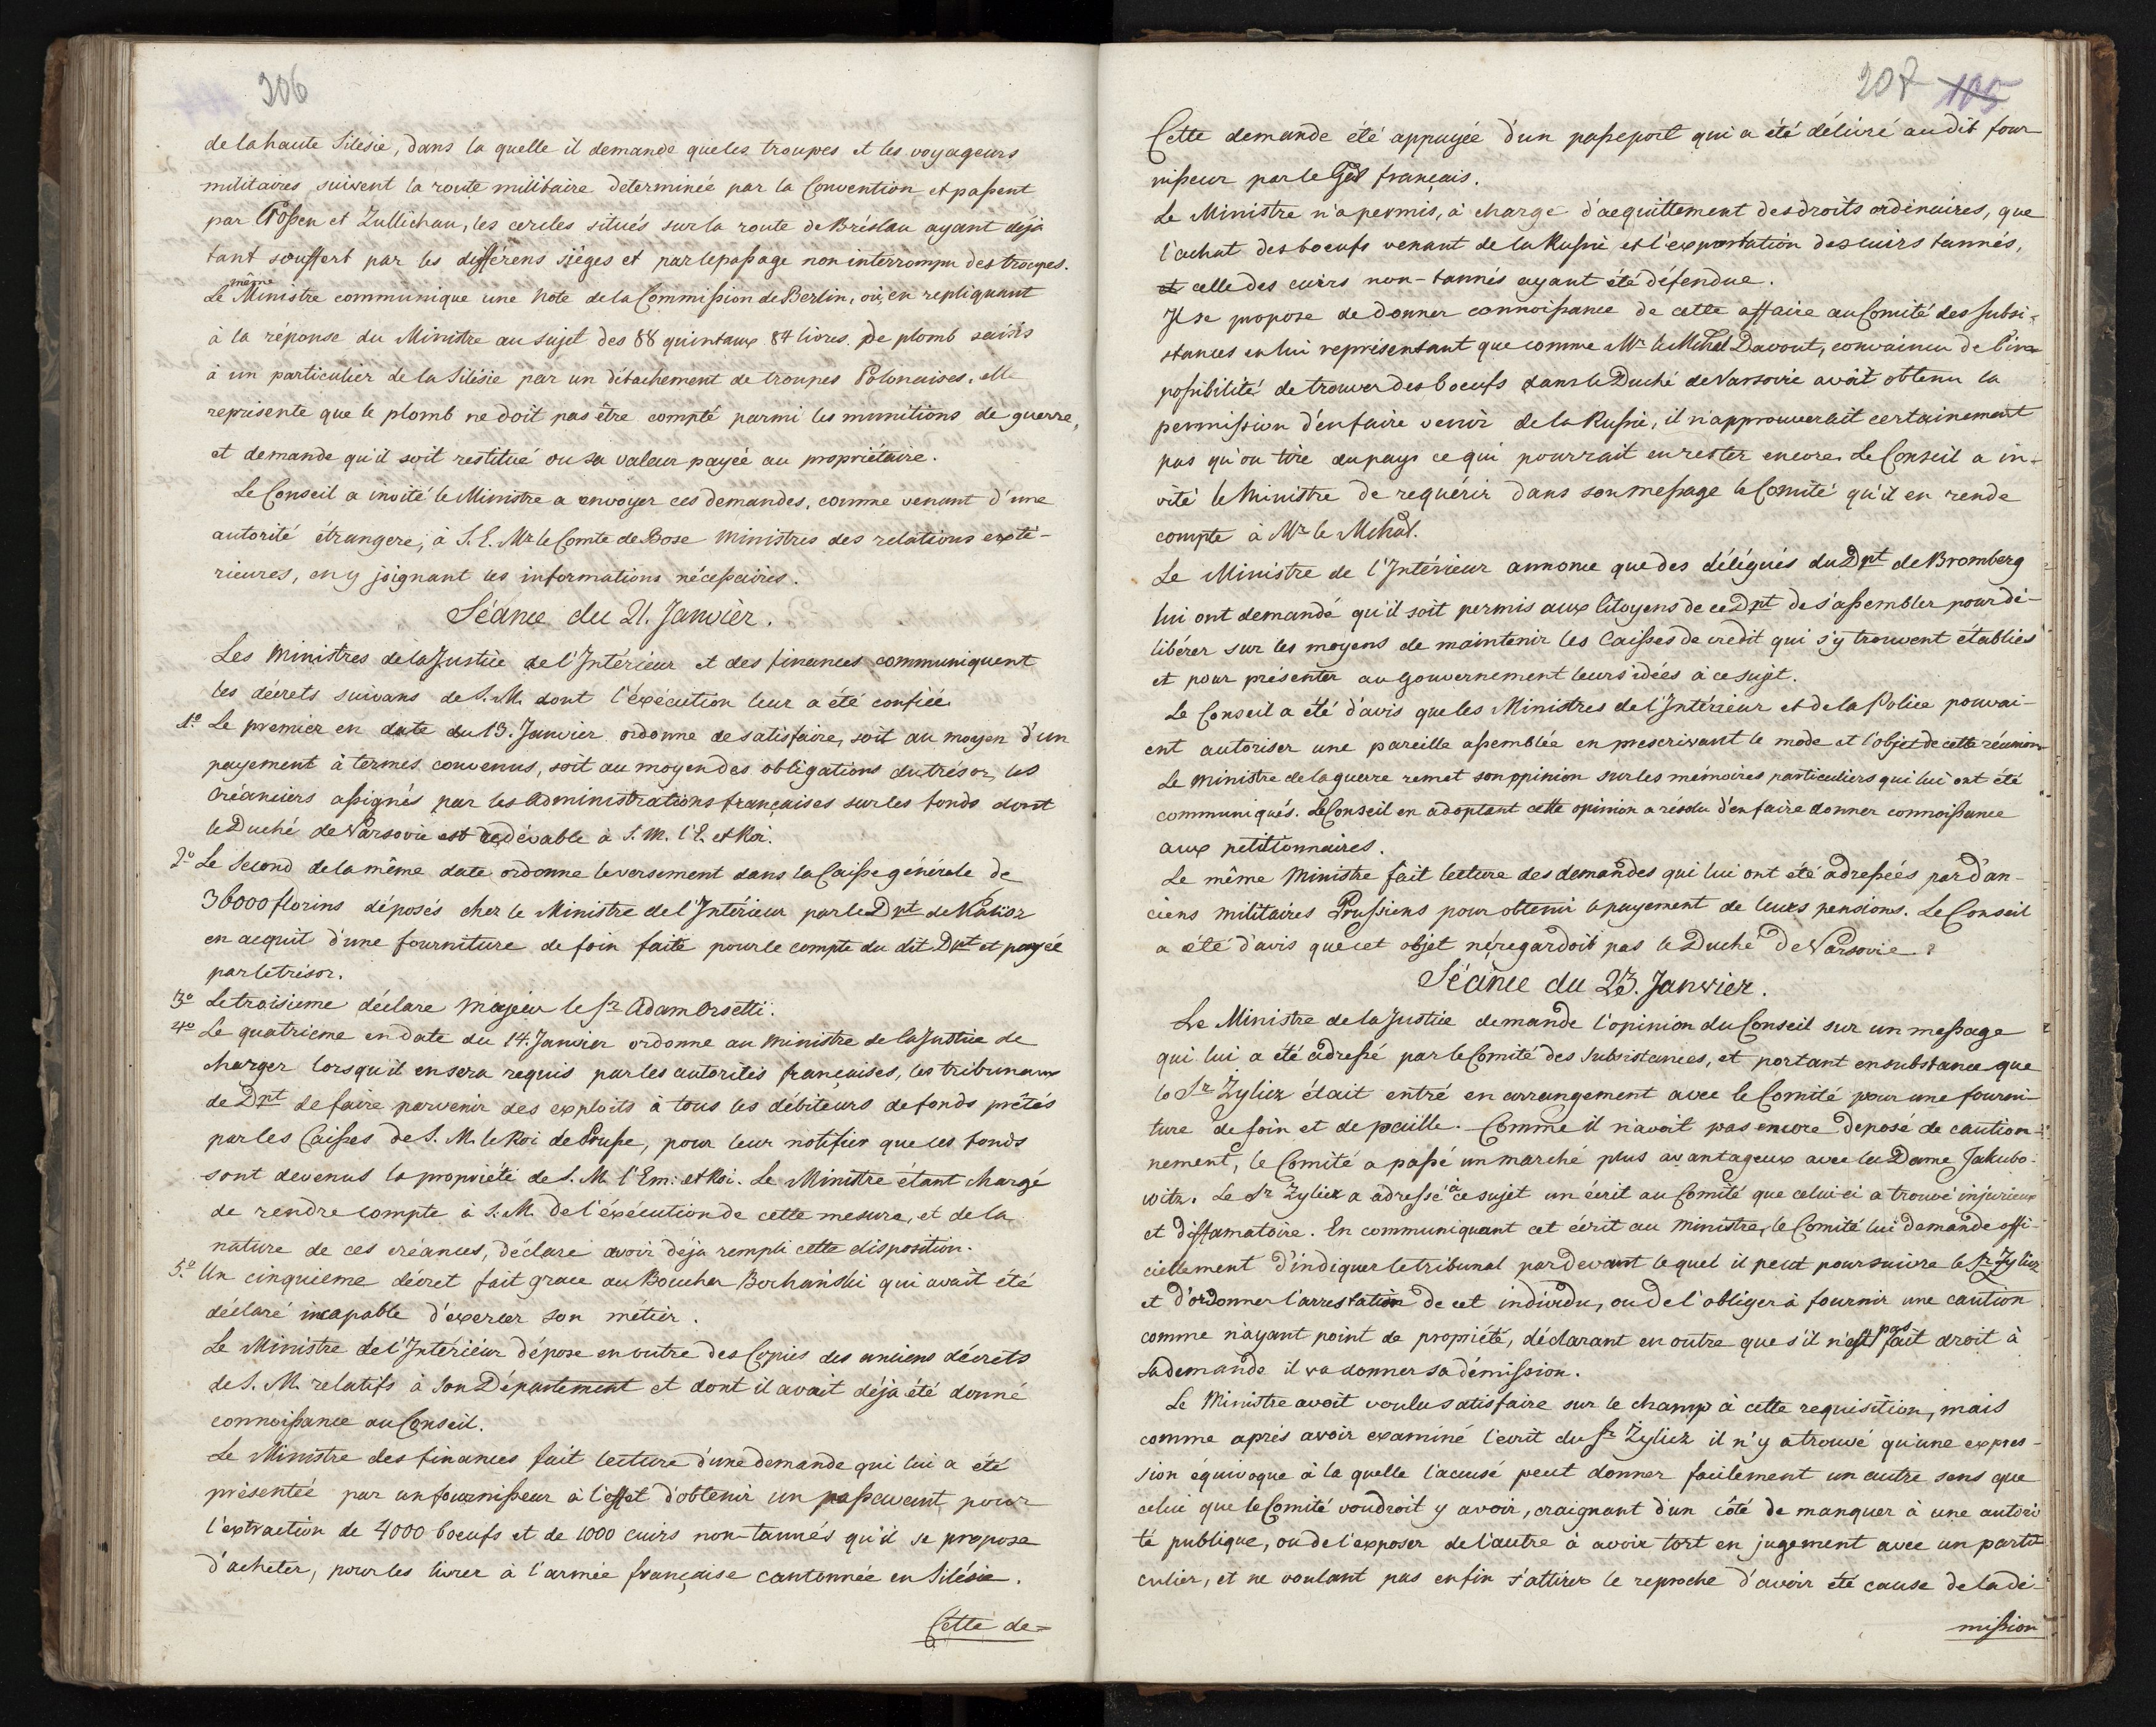 206
de la haute Silésie, dans la quelle il demande que les troupes et les voyageurs
militaires suivent la route militaire determinée par la Convention et paſsent
par Croſsen et Zullichau, les cercles situés sur la route de Bréslau ayant déja
tant souffert par les différens sièges et par le paſsage non interrompu des troupes.
Le même Ministre communique une Note de la Commiſsion de Berlin, où, en repliquant
à la réponse du Ministre au sujet des 88 quintaux 84 livres de plomb saisis
à un particulier de la Silésie par un détachement de troupes Polonaises, elle
représente que le plomb ne doit pas être compté parmi les munitions de guerre,
et demande qu'il soit restitué ou sa valeur payée au propriétaire.
Le Conseil a invité le Ministre a envoyer ces demandes, comme venant d'une
autorité étrangere, à S. E. Mr le Comte de Bose Ministres des relations exté-
rieures, en y joignant les informations néceſsaires.
Séance du 21. Janvier.
Les Ministres de la Justice de l'Intérieur et des finances communiquent
les décrets suivans de S. M. dont l'éxécution leur a été confiée
1o Le premier en date du 13. Janvier ordonne de satisfaire, soit au moyen d'un
payement à termes convenus, soit au moyen des obligations du trésor, les
Créanciers aſsignés par les Administrations françaises sur les fonds dont
le Duché de Varsovie est redévable à S. M. l'E. et Roi.
2o Le Second de la même date ordonne le versement dans la Caiſse générale de
36000 florins déposés chez le Ministre de l'Intérieur par le Dpt de Kalisz
en acquit d'une fourniture de foin faite pour le compte du dit Dpt et payée
par le trésor.
3o Le troisieme déclare Majeur le Sr Adam Orsetti.
4o Le quatrieme en date du 14. Janvier ordonne au Ministre de la Justice de
charger lorsqu'il en sera requis par les autorités françaises, les tribunaux
de Dpt de faire parvenir des exploits à tous les débiteurs de fonds prétés
par les Caiſses de S. M. le Roi de Pruſse, pour leur notifier que ces fonds
sont devenus la propriété de S. M. l'Em: et Roi. Le Ministre étant chargé
de rendre compte à S. M. de l'éxécution de cette mesure, et de la
nature de ces créances, déclare avoir déja rempli cette disposition.
5.o Un cinquieme décret fait grace au Boucher Bochański qui avait été
déclaré incapable d'exercer son métier.
Le Ministre de l'Intérieur dépose en outre des Copies des anciens décrets
de S. M. relatifs à son Département et dont il avait déja été donné
connoiſsance au Conseil.
Le Ministre des finances fait lecture d'une demande qui lui a été
présentée par un fourniſseur à l'effet d'obtenir un paſsavant pour
l'extraction de 4000 boeufs et de 1000 cuirs non-tannés qu'il se propose
d'acheter, pour les livrer à l'armée française cantonnée en Silésie.
Cette de=
207 105
Cette demande été appuyée d'un paſseport qui a été délivré au dit four
niſseur par le Gal français.
Le Ministre n'a permis, à charge d'acquittement des droits ordinaires, que
l'achat des boeufs venant de la Ruſsie et l'exportation des cuirs tannés,
et celle des cuirs non-tannés ayant été défendue.
Il se propose de donner connoiſsance de cette affaire au Comité des Subsi-
stances en lui représentant que comme Mr le Mchal Davout, convaincu de l'im-
poſsibilité de trouver des boeufs dans le Duché de Varsovie avoit obtenu la
permiſsion d'en faire venir de la Ruſsie, il n'approuverait certainement
pas qu'on tire du pays ce qui pourrait en rester encore. Le Conseil a in-
vité le Ministre de requérir dans son meſsage le Comité qu'il en rende
compte à Mr le Mchal.
Le Ministre de l'Intérieur annonce que des délégués du Dpt de Bromberg
lui ont demandé qu'il soit permis aux Citoyens de ce Dpt de s'aſsembler pour dé-
libérer sur les moyens de maintenir les Caiſses de credit qui s'y trouvent établies
et pour présenter au gouvernement leurs idées à ce sujet.
Le Conseil a été d'avis que les Ministres de l'Intérieur et de la Police pouvai-
ent autoriser une pareille aſsemblée en prescrivant le mode et l'objet de cette réunion.
Le Ministre de la guerre remet son opinion sur les mémoires particuliers qui lui ont été
communiqués. Le Conseil en adoptant cette opinion a résolu d'en faire donner connoiſsance
aux petitionnaires.
Le même Ministre fait lecture des demandes qui lui ont été adreſsées par d'an-
ciens militaires Pruſsiens pour obtenir le payement de leurs pensions. Le Conseil
a été d'avis que cet objet ne regardoit pas le Duché de Varsovie.
Séance du 23. Janvier.
Le Ministre de la Justice demande l'opinion du Conseil sur un meſsage
qui lui a été adreſsé par le Comité des Subsistances, et portant en substance que
le Sr Zylicz était entré en arrangement avec le Comité pour une fourni-
ture de foin et de paille. Comme il n'avoit pas encore deposé de caution-
nement, le Comité a paſsé un marché plus avantageux avec la Dame Jakubo-
witz. Le Sr Zylicz a adreſsé à ce sujet un écrit au Comité que celui-ci a trouvé injurieux
et diffamatoire. En communiquant cet écrit au Ministre, le Comité lui demande offi-
ciellement d'indiquer le tribunal pardevant lequel il peut poursuivre le Sr Zylicz
et d'ordonner l'arrestation de cet individu, ou de l'obliger à fournir une caution
comme n'ayant point de propriété, déclarant en outre que s'il n'est pas fait droit à
sa demande il va donner sa démiſsion.
Le Ministre avoit voulu satisfaire sur le champ à cette requisition, mais
comme après avoir examiné l'ecrit du Sr Zylicz il n'y a trouvé qu'une expres-
sion équivoque à la quelle l'accusé peut donner facilement un autre sens que
celui que le Comité voudroit y avoir, craignant d'un côté de manquer à une autori
té publique, ou de l'exposer de l'autre à avoir tort en jugement avec un parti
culier, et ne voulant pas enfin s'attirer le reproche d'avoir été cause de la dé-
miſsion